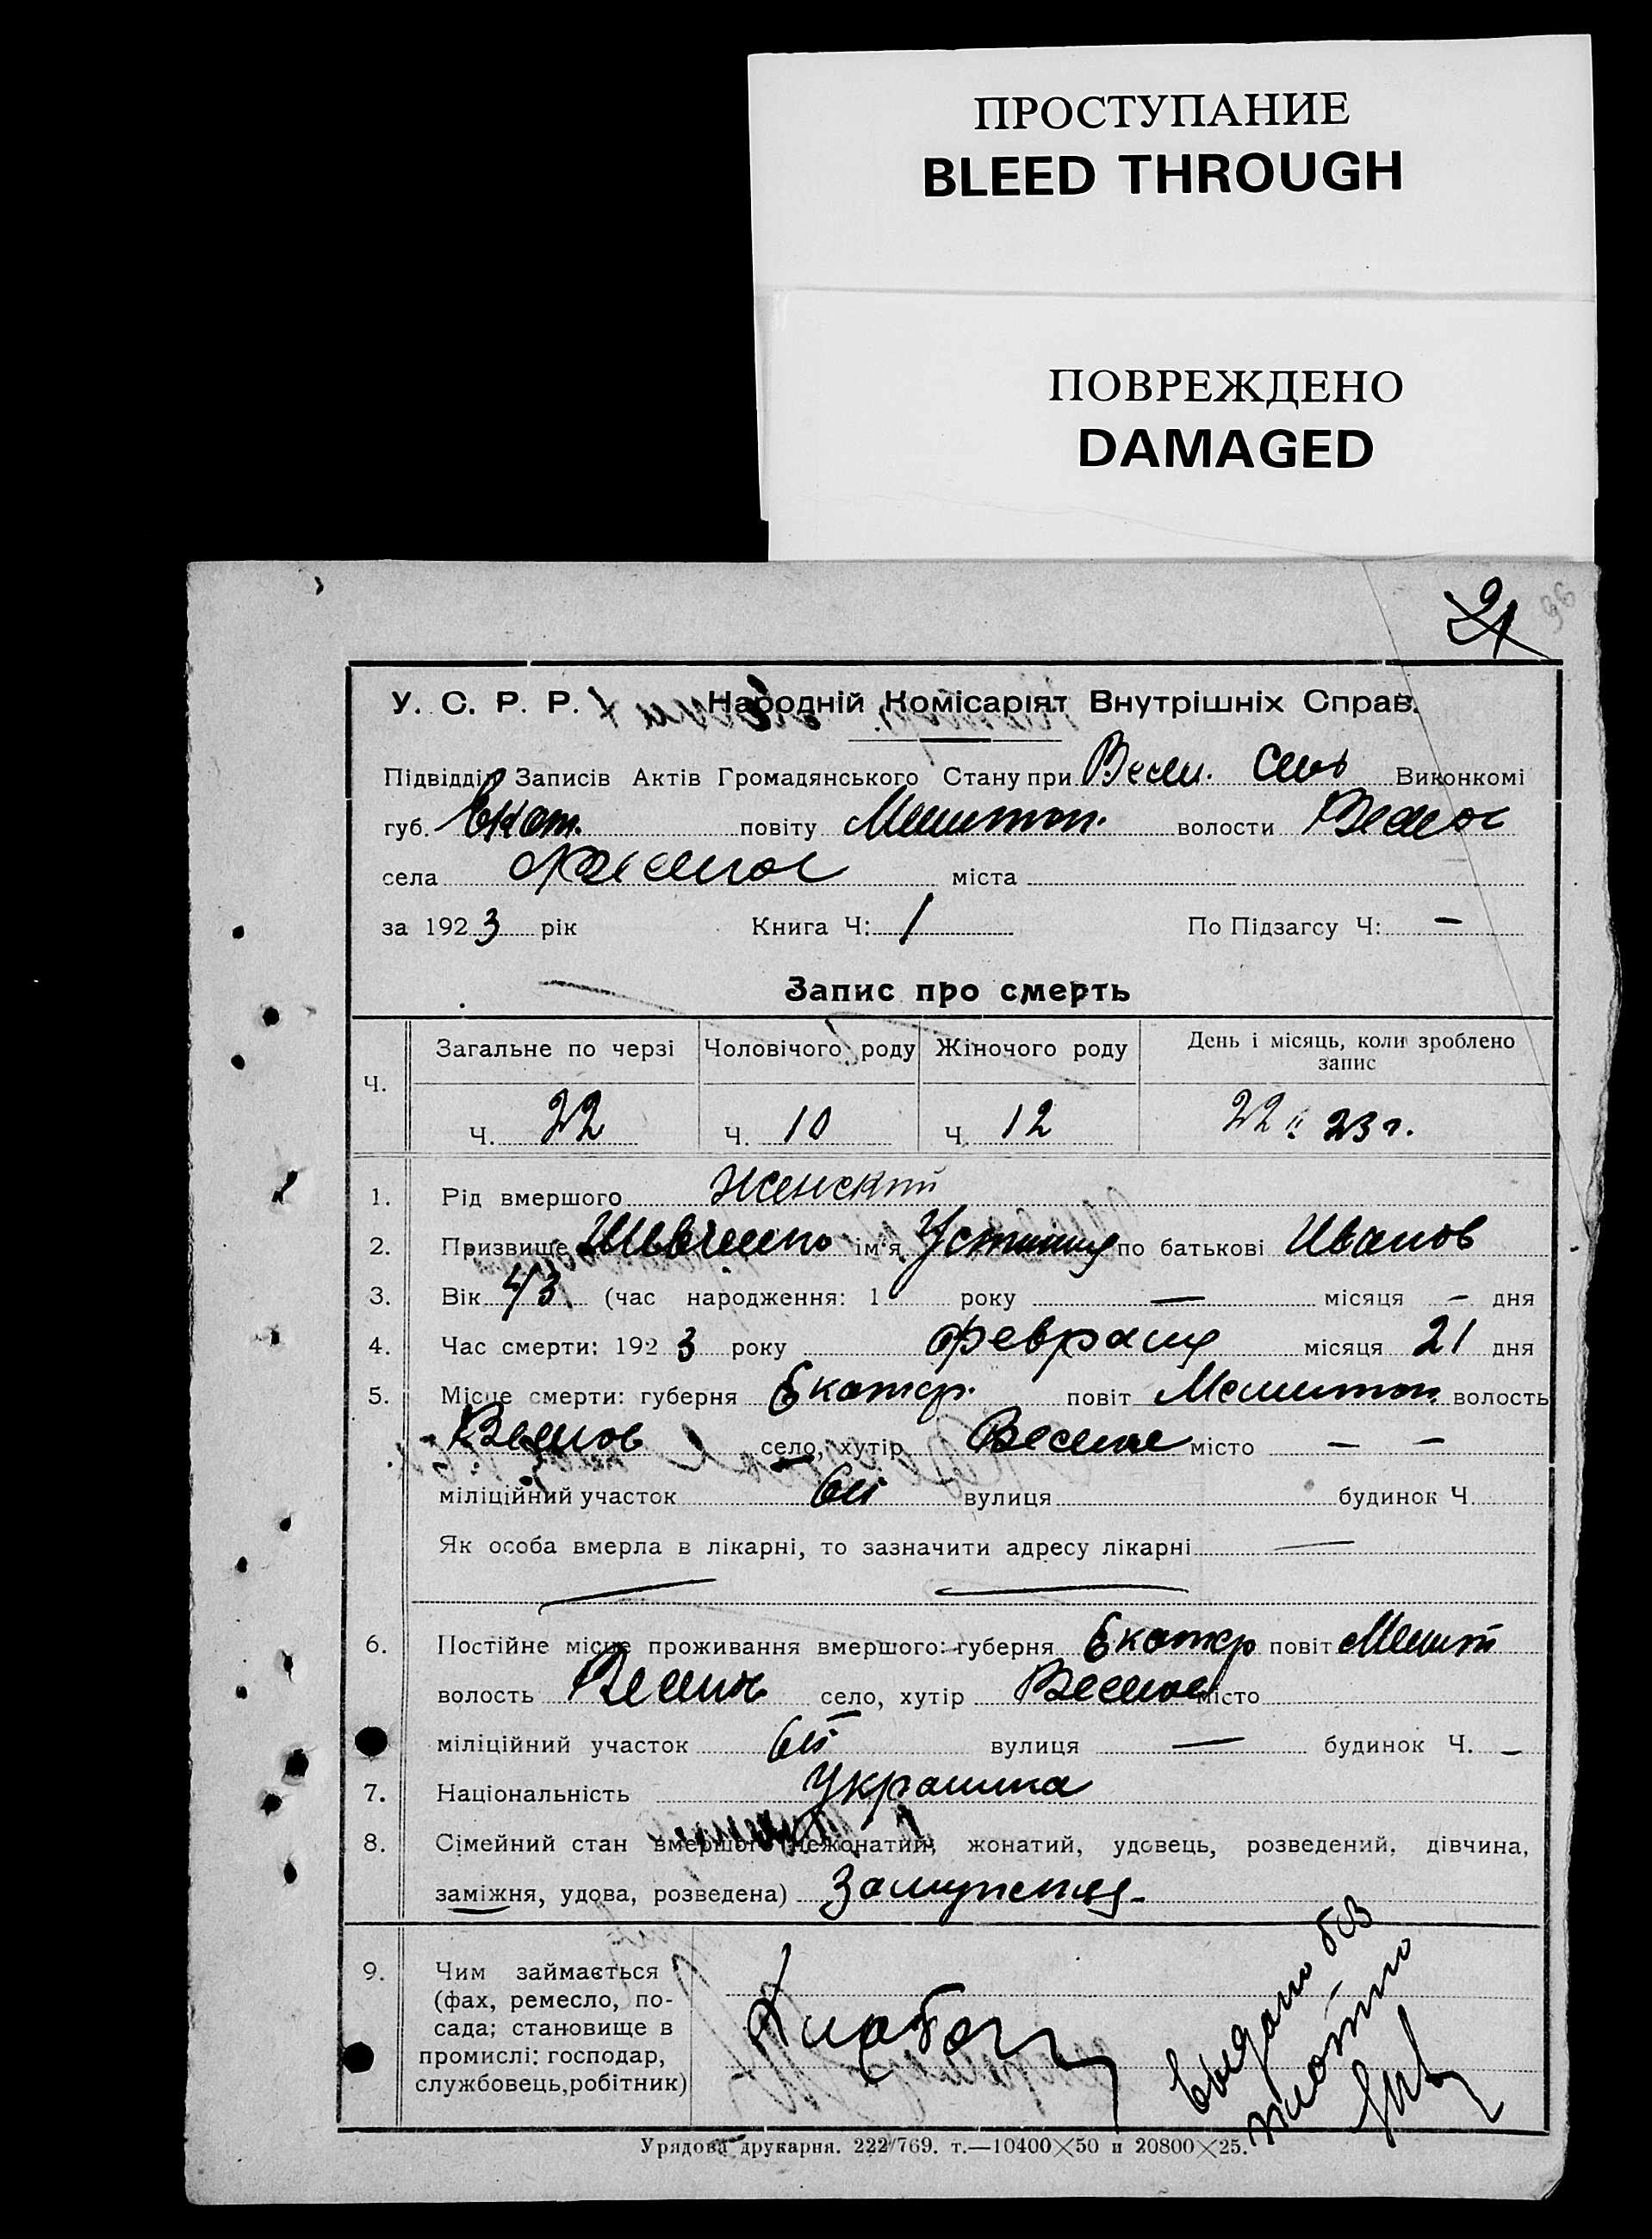 ПРОСТУПАНИЕ
BLEED THROUGH
ПОВРЕЖДЕНО
DAMAGED
21
96
У. С. Р. Р. Народній Комісаріят Внутрішніх Справ.
Підвідділ Записів Актів Громадянського Стану при Весел. Сель Виконкомі
губ. Екат. повіту Мелитоп. волости Весел
села міста
за 1923 рік Книга Ч: 1 По Підзагсу Ч: —
Запис про смерть
Загальне по черзі Чоловічого роду Жіночого роду День і місяць, коли зроблено запис
Ч.
Ч. 22 Ч. 10 Ч. 12 22 II 23 г.
1. Рід вмершого Женский
2. Призвище ім'я Устиния по батькові Иванов
3. Вік 43 (час народження: 1 року — місяця — дня
4. Час смерти: 1923 року февраля місяця 21 дня
5. Місце смерти: губерня Екатер. повіт Мелитоп. волость
Веселов село, хутір Веселое місто — —
міліційний участок 6й вулиця будинок Ч.
Як особа вмерла в лікарні, то зазначити адресу лікарні —
6. Постійне місце проживання вмершого: губерня Екатер повіт Мелит
волость село, хутір Веселое місто
міліційний участок 6й вулиця — будинок Ч. —
7. Національність Украинка
8. Сімейний стан вмершого (нежонатий, жонатий, удовець, розведений, дівчина,
заміжня, удова, розведена) Замужняя
9. Чим займається
(фах, ремесло, по-
сада; становище в
промислі: господар,
службовець, робітник)
Хлебоп
Выдано без
платно
Урядова друкарня. 222/769. т.—10400×50 и 20800×25.